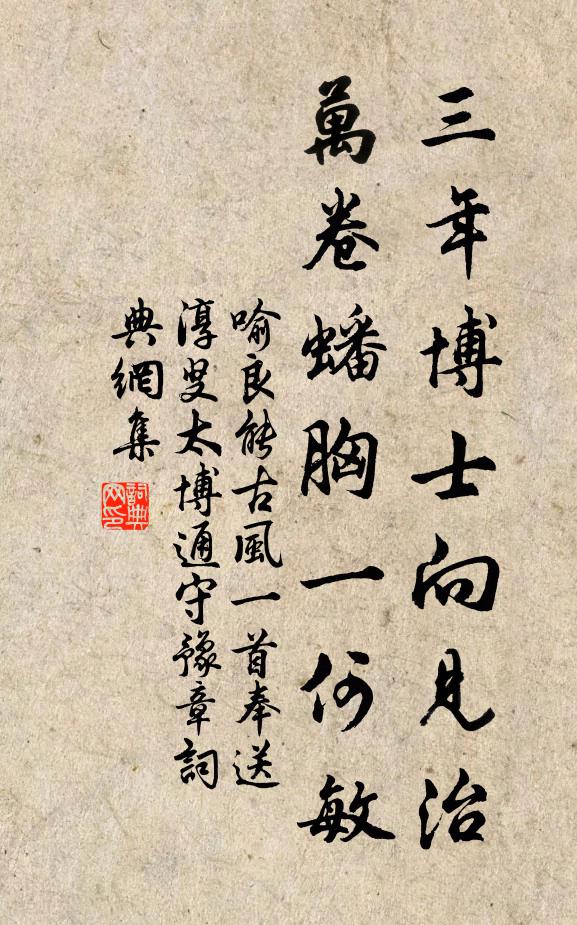 三年博士向見治
萬卷蟠胸一何敏
喻良能古風一首奉送
淳叟太博通守豫章詞
典網集
詞典
网印